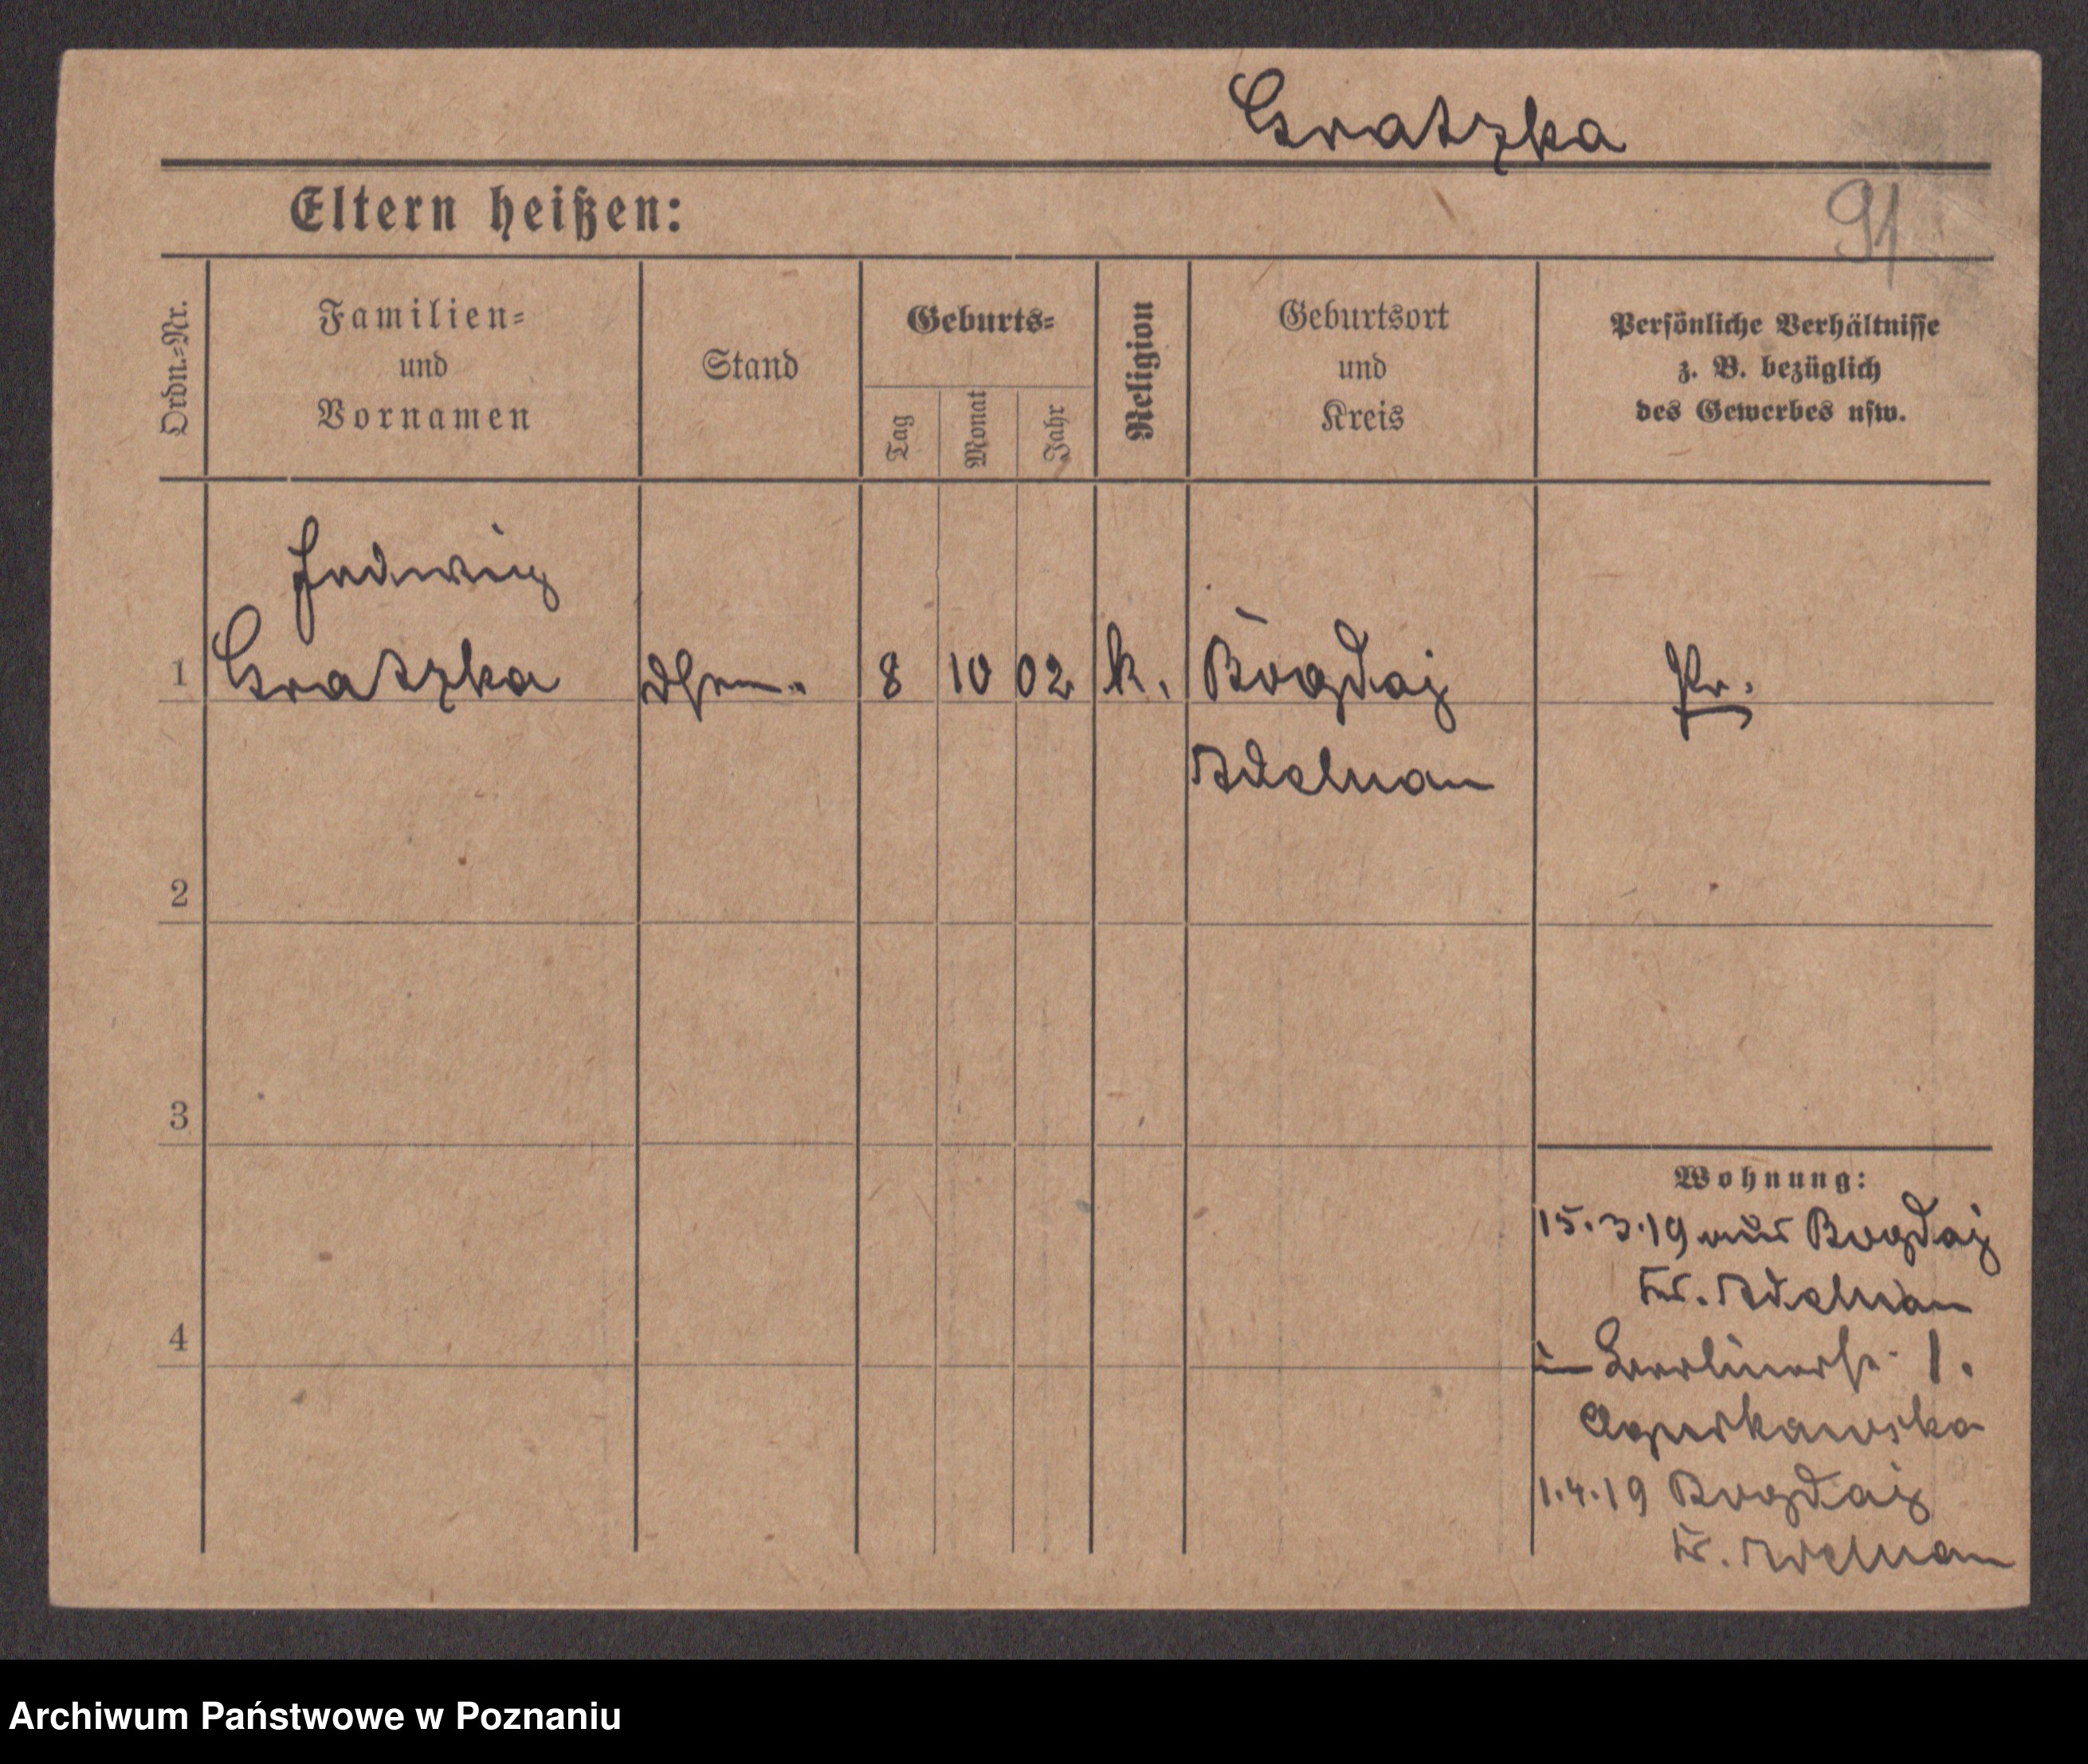 Gratzka
Eltern heißen:
91
Ordn.=Nr.
Familien=
und
Vornamen
Stand
Geburts=
Tag
Monat
Jahr
Religion
Geburtsort
und
Kreis
Persönliche Verhältnisse
z. B. bezüglich
des Gewerbes usw.
Hedwig
1 Gratzka 8 10 02 k. Bogdaj Pr.
Adelnau
2
3
Wohnung:
15.3.19 aus Bogdaj
Kr. Adelnau
4
in Berlinerstr. 1.
1.4.19 Bogdaj
Kr. Adelnau
Archiwum Państwowe w Poznaniu